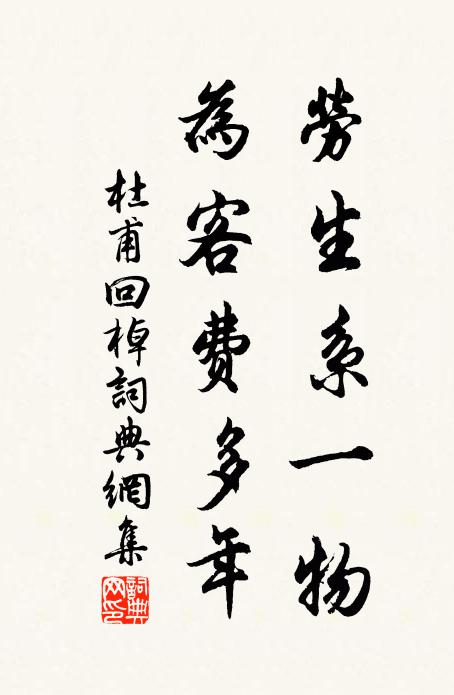 勞生系一物
為客費多年
杜甫回棹詞典網集
詞典
网印